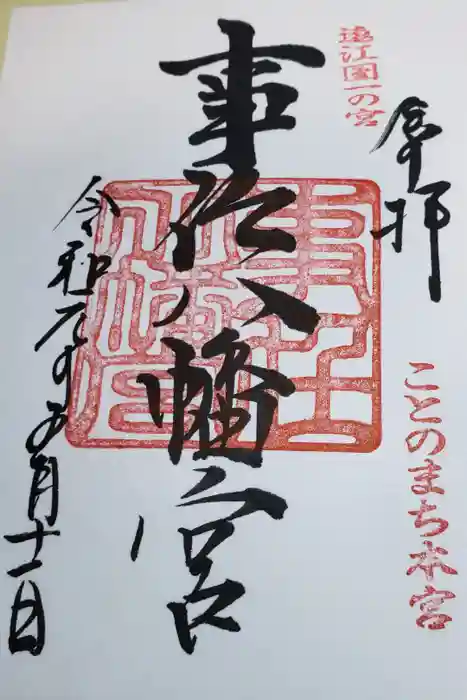 遠江國一の宮
奉拝
ことのまち本宮
事任八幡宮
事任八幡宮
令和元年五月十一日